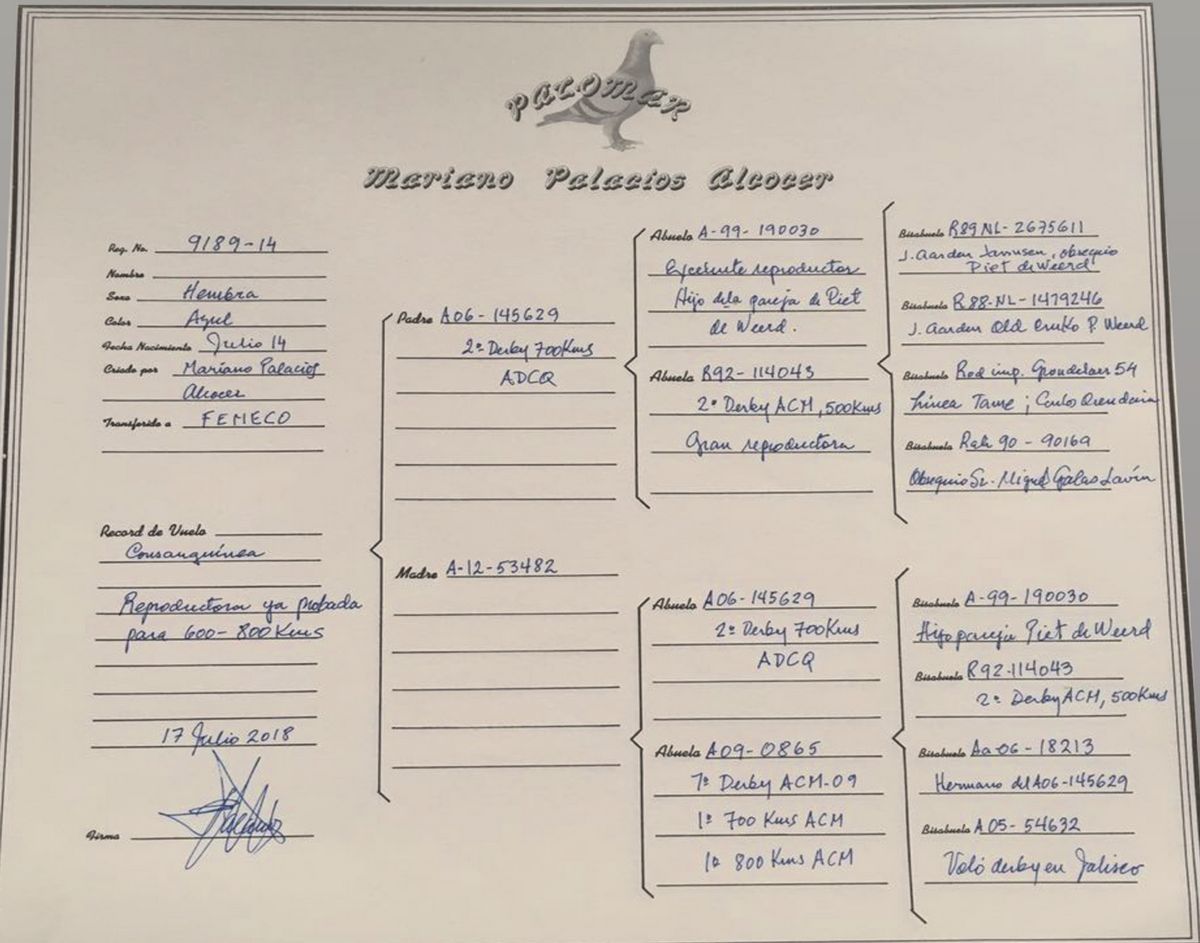 PALOMAR
Mariano Palacios Alcocer
Reg. No. 9189-14
Nombre
Sexo Hembra
Color Azul
Fecha Nacimiento Julio 14
Criado por Mariano Palacios
Alcocer
Transferido a FEMECO
Record de Vuelo
Consanguínea
Reproductora ya probada
para 600-800 Kms
17 Julio 2018
Firma
Padre A06-145629
2º Derby 700Kms
ADCQ
Madre A-12-53482
Abuelo A-99-190030
Excelente reproductor
Hijo de la pareja de Piet
de Weerd.
Abuela R92-114043
2º Derby ACM, 500Kms
Gran reproductora
Abuelo A06-145629
2º Derby 700Kms
ADCQ
Abuela A09-0865
7º Derby ACM-09
1º 700 Kms ACM
1º 800 Kms ACM
Bisabuelo R89NL-2675611
J. Aarden Janssen, obsequio
Piet de Weerd
Bisabuela R88-NL-1479246
J. Aarden Old P. Weerd
Bisabuelo Red imp. Grondelaers 54
Línea Tame; Carlos Orendain
Bisabuela 90-90169
Obsequio Sr. Miguel Galas Lavín
Bisabuelo A-99-190030
Hijo pareja Piet de Weerd
Bisabuela R92-114043
2º Derby ACM, 500Kms
Bisabuelo Aa-06-18213
Hermano del A06-145629
Bisabuela A05-54632
Voló derby en Jalisco